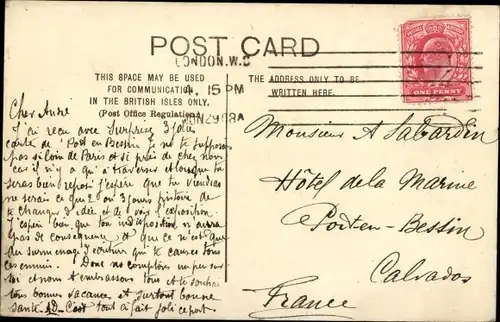 POST CARD
LONDON. W.C
4. 15 PM
JUN 29 08
THIS SPACE MAY BE USED
FOR COMMUNICATION
IN THE BRITISH ISLES ONLY.
(Post Office Regulation)
THE ADDRESS ONLY TO BE
WRITTEN HERE.
POSTAGE REVENUE
ONE PENNY
Cher André
J'ai reçu avec Surprise 3 jolies
carte de Port en Bessin Je ne te supposais
pas si loin de Paris et si près de chez nous
car il n'y a qu'à traverser et lorsque tu
seras bien reposé j'espère que tu viendras
ne serais ce que 2 ou 3 jours histoire de
te changer d'idée et de voir l'exposition
J'espère bien que ton indisposition n'aura
pas de conséquence et que ce n'est que
du surmenage qui te cause tous
ces ennuis. Donc nous comptons un peu sur
toi et nous t'embrassons tous et te souhai
tons bonnes vacances et surtout bonne
santé C'est tout à fait joli ce port
Monsieur A Sabardin
Hôtel de la Marine
Port-en-Bessin
Calvados
France